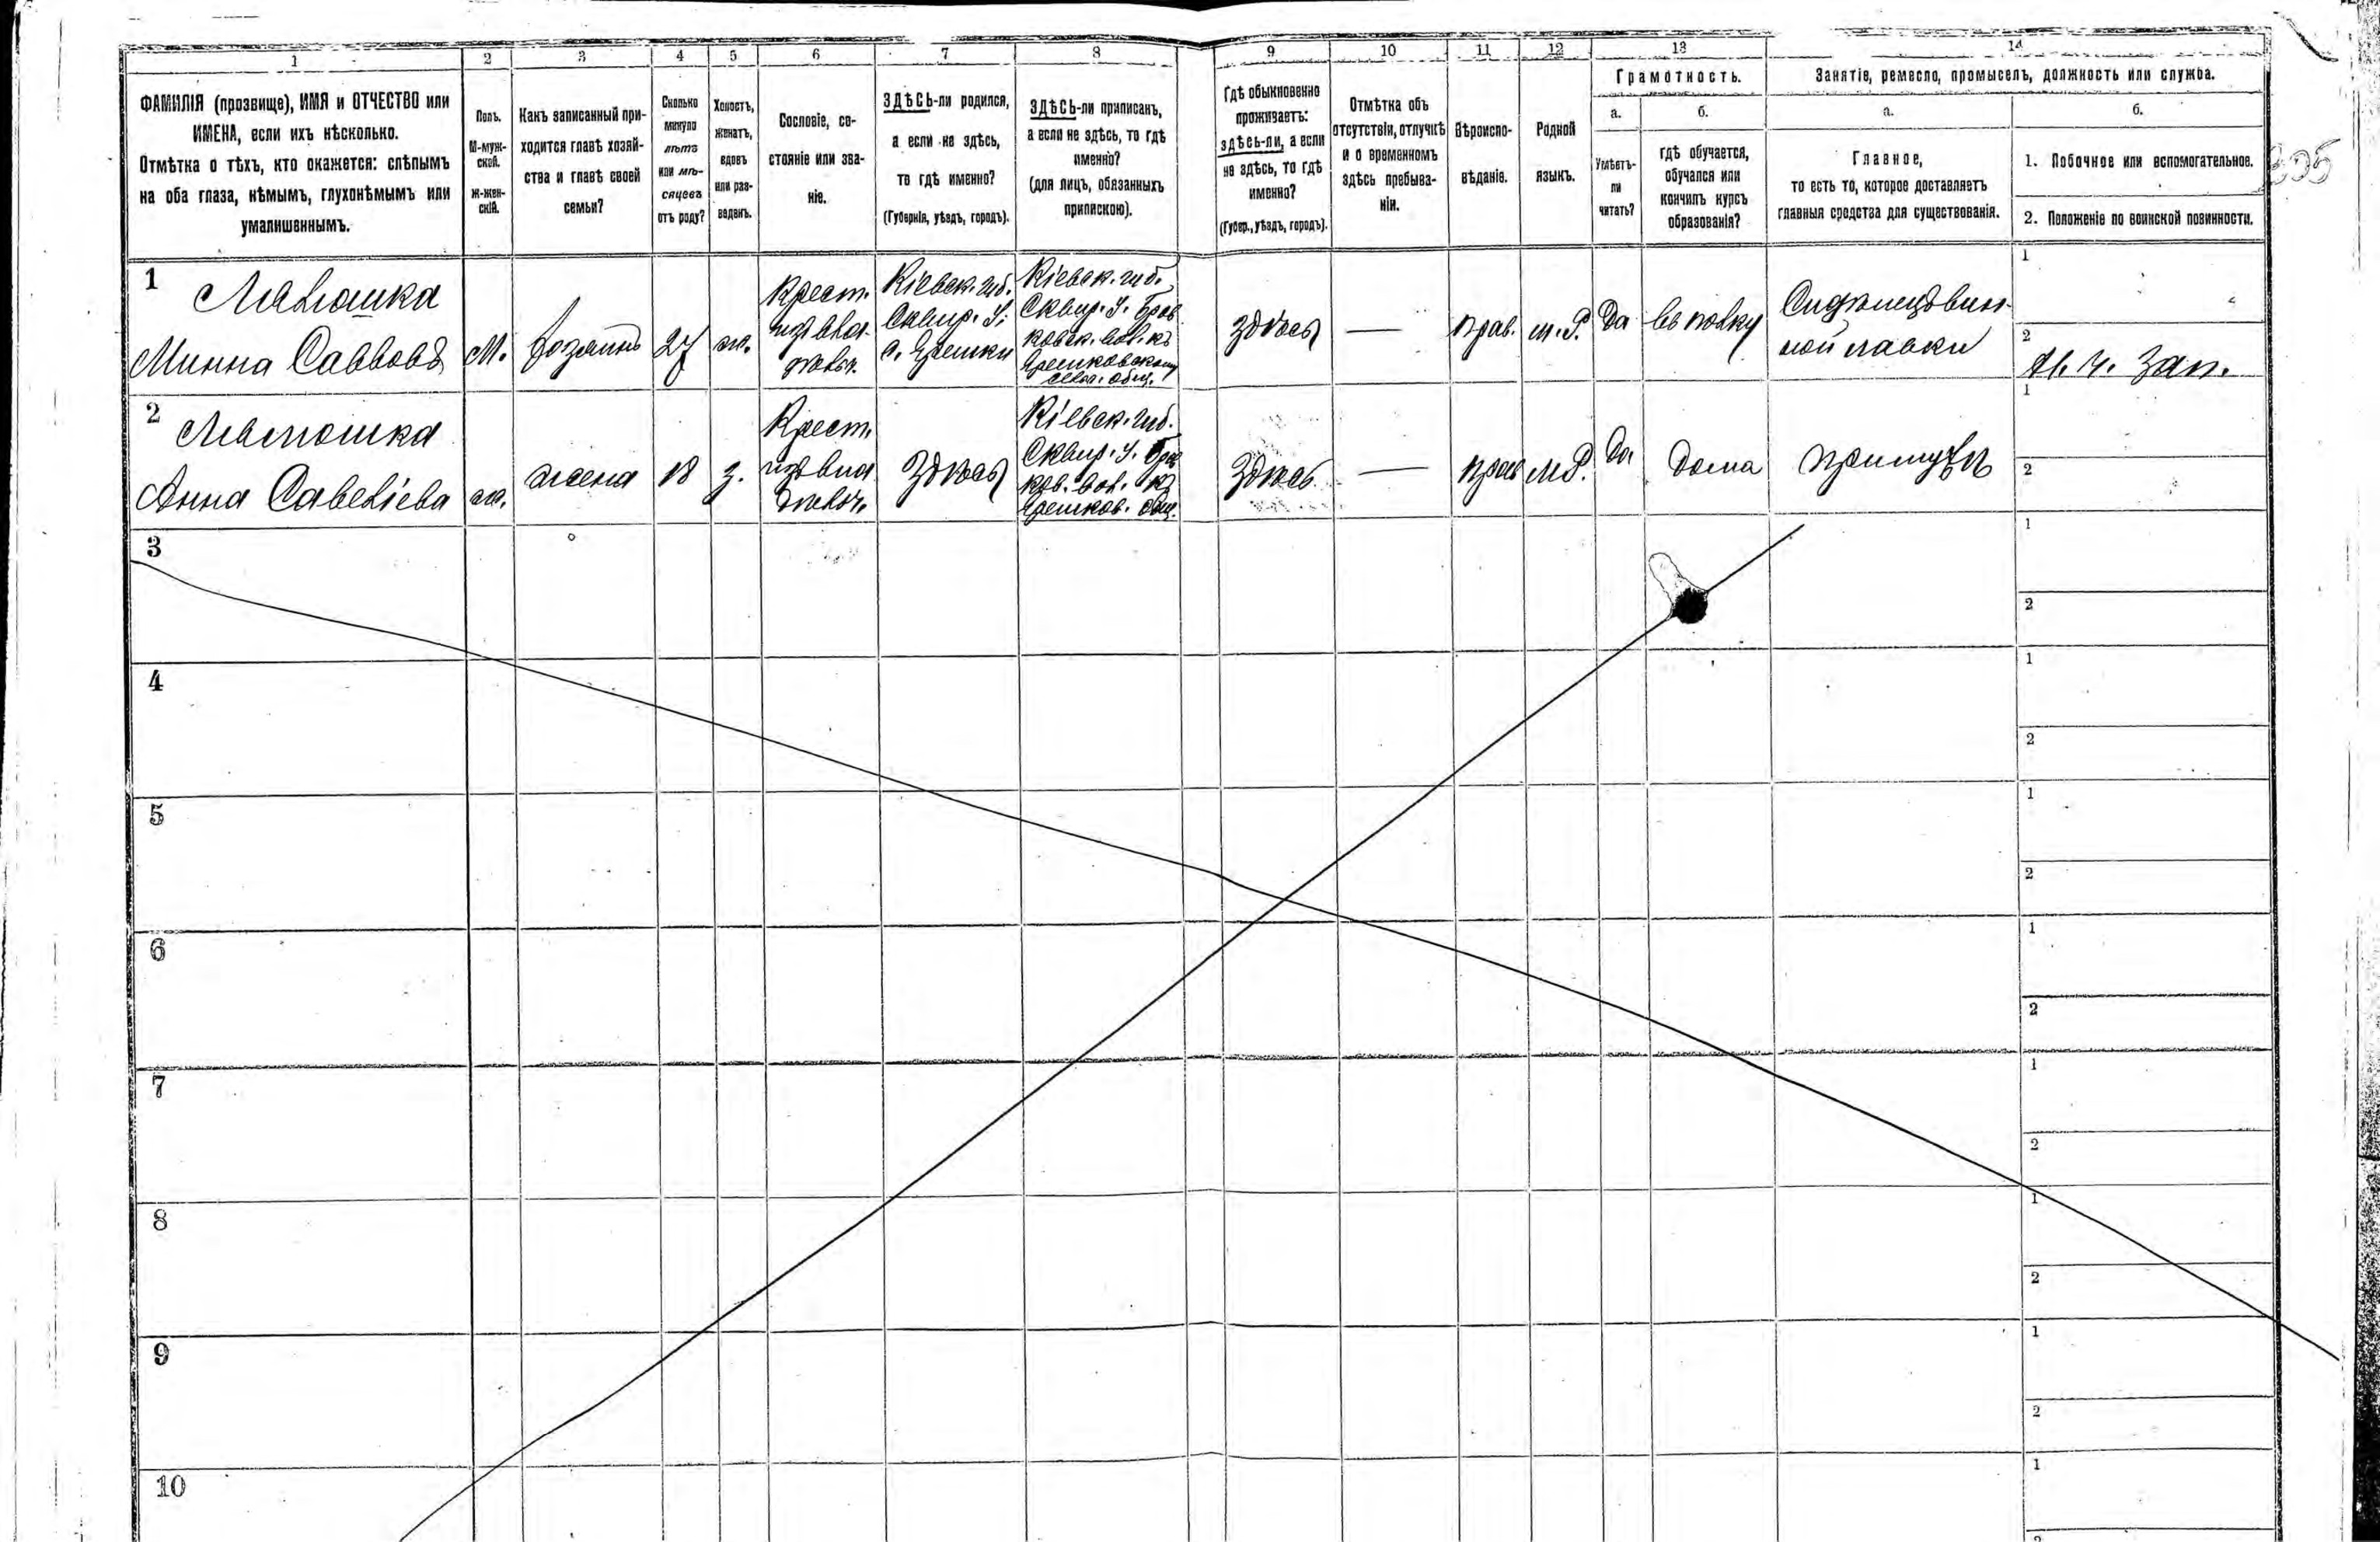 1 2 3 4 5 6 7 8 9 10 11 12 13 14
ФАМИЛІЯ (прозвище), ИМЯ и ОТЧЕСТВО или
ИМЕНА, если ихъ нѣсколько.
Отмѣтка о тѣхъ, кто окажется: слѣпымъ
на оба глаза, нѣмымъ, глухонѣмымъ или
умалишеннымъ.
Полъ.
М-муж-
ской.
Ж-жен-
скій.
Какъ записанный при-
ходится главѣ хозяй-
ства и главѣ своей
семьи?
Сколько
минуло
лѣтъ
или мѣ-
сяцевъ
отъ роду?
Холостъ,
женатъ,
вдовъ
или раз-
веденъ.
Сословіе, со-
стояніе или зва-
ніе.
ЗДѢСЬ-ли родился,
а если не здѣсь,
то гдѣ именно?
(Губернія, уѣздъ, городъ).
ЗДѢСЬ-ли приписанъ,
а если не здѣсь, то гдѣ
именно?
(для лицъ, обязанныхъ
припискою).
Гдѣ обыкновенно
проживаетъ:
здѣсь-ли, а если
не здѣсь, то гдѣ
именно?
(Губер., уѣздъ, городъ).
Отмѣтка объ
отсутствіи, отлучкѣ
и о временномъ
здѣсь пребыва-
ніи.
Вѣроиспо-
вѣданіе.
Родной
языкъ.
Грамотность.
а.
Умѣетъ-
ли
читать?
б.
гдѣ обучается,
обучался или
кончилъ курсъ
образованія?
Занятіе, ремесло, промыселъ, должность или служба.
а.
Главное,
то есть то, которое доставляетъ
главныя средства для существованія.
б.
1. Побочное или вспомогательное.
2. Положеніе по воинской повинности.
1
Минна Саввовъ
М.
хозяинъ
27
ж.
Крест.
изъ
Кіевск. губ.
Сквир. У.
с. Ярешки
Кіевск. губ.
Сквир. У.
Ярешковскому
общ.
здѣсь
—
прав.
м. Р.
да
въ полку
Сидѣлецъ вин-
ной лавки
1
2
2
Анна Савеліева
ж.
жена
18
з.
Крест.
изъ
здѣсь
Кіевск. губ.
Сквир. У.
Ярешков. общ.
здѣсь
—
прав
м Р.
да
дома
при мужѣ
1
2
3
1
2
4
1
2
5
1
2
6
1
2
7
1
2
8
1
2
9
1
2
10
1